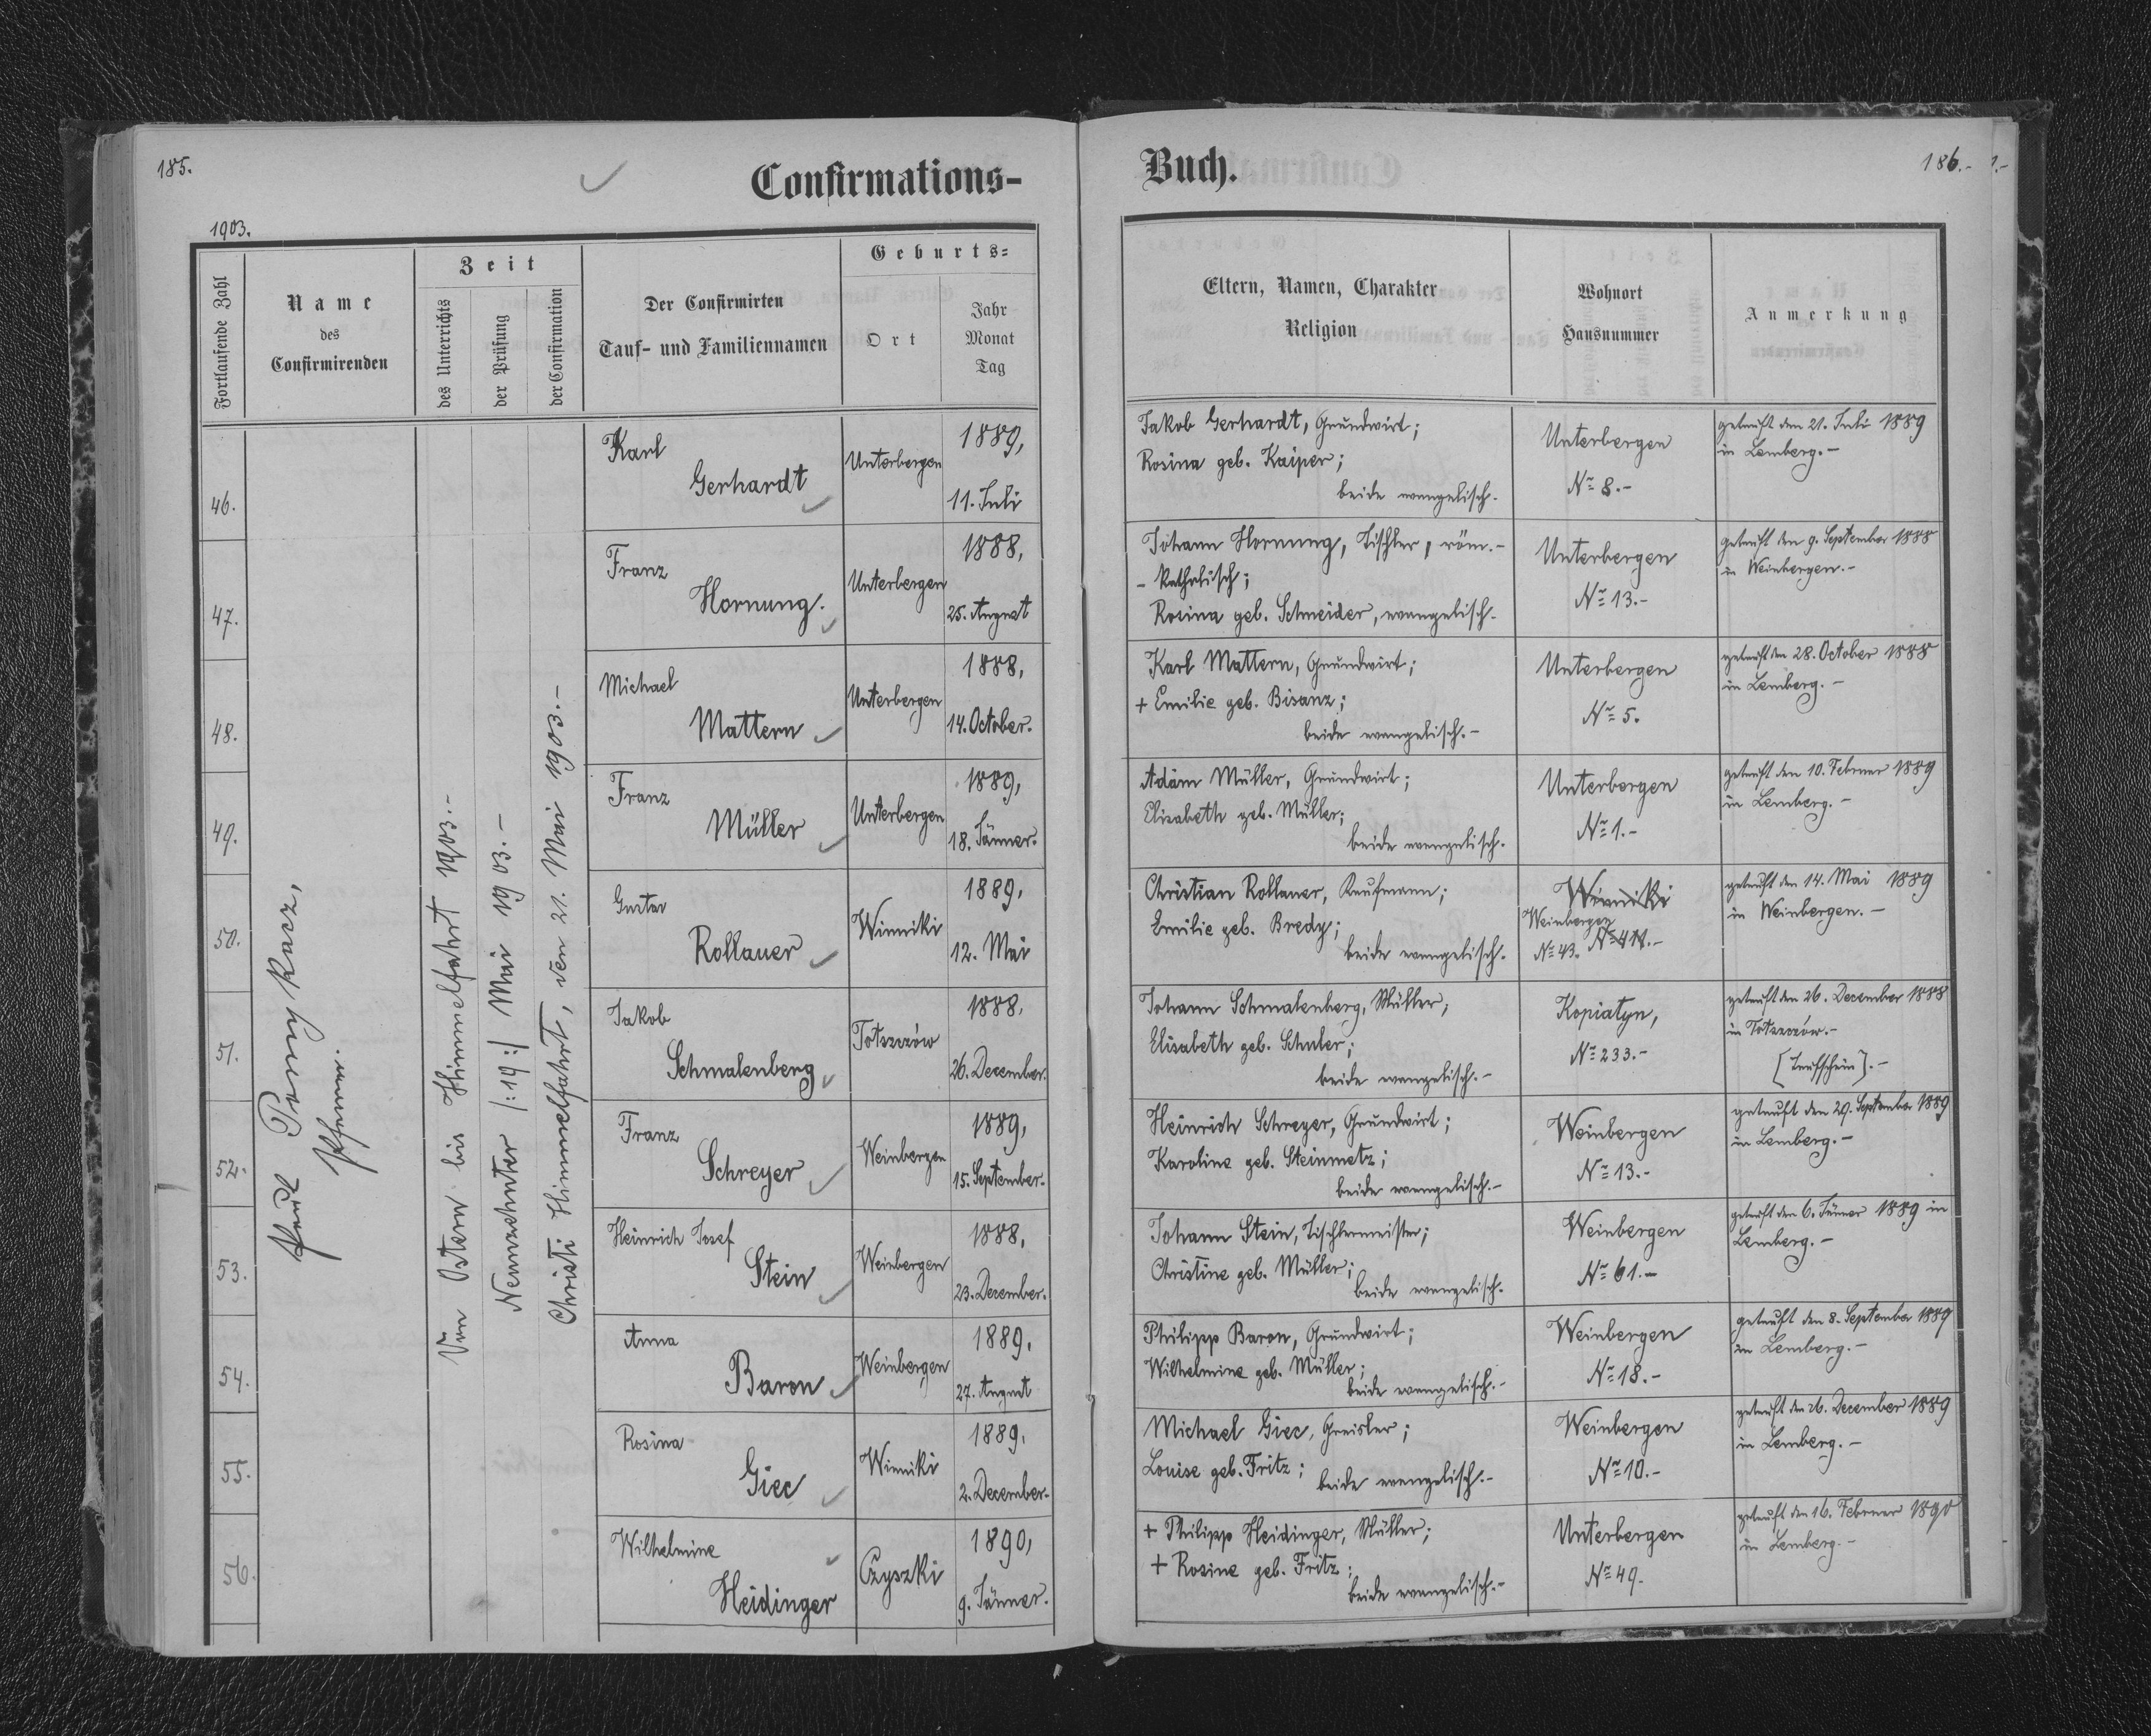 185.
Confirmations-
1903.
Fortlaufende Zahl
Name
des
Confirmirenden
Zeit
des Unterrichts
der Prüfung
der Confirmation
Der Confirmirten
Tauf- und Familiennamen
Geburts-
Ort
Jahr
Monat
Tag
Paul
Pfarrer.
Von Ostern bis Himmelfahrt 1903.-
Neunzehnter /:19:/ Mai 1903.-
Christi Himmelfahrt, den 21. Mai 1903.-
46.
Karl
Gerhardt
Unterbergen
1889,
11. Juli
47.
Franz
Hornung.
Unterbergen
1888,
25. August
48.
Michael
Mattern
Unterbergen
1888,
14. October.
49.
Franz
Müller
Unterbergen
1889,
18. Jänner.
50.
Gustav
Rollauer
Winniki
1889,
12. Mai
51.
Jakob
Schmalenberg
Totszczów
1888.
26. December.
52.
Franz
Schreyer
Weinbergen
1889,
15. September.
53.
Heinrich Josef
Stein
Weinbergen
1888,
23. Dezember.
54.
Anna
Baron
Weinbergen
1889.
27. August
55.
Rosina
Giec
Winniki
1889.
2. December.
56.
Wilhelmine
Heidinger
Czyszki
1890,
9. Jänner.
Buch.
186.-
Eltern, Namen, Charakter
Religion
Wohnort
Hausnummer
Anmerkung
Jakob Gerhardt, Grundwirt;
Rosina geb. Kaiper;
beide evangelisch.
Unterbergen
No 8.-
getauft den 21. Juli 1889
in Lemberg.-
Johann Hornung, Tischler, röm.-
-katholisch;
Rosina geb. Schneider, evangelisch.
Unterbergen
No 13.-
getauft den 9. September 1888
in Weinbergen.-
Karl Mattern, Grundwirt;
+ Emilie geb. Bisanz;
beide evangelisch.-
Unterbergen
No 5.
getauft den 28. October 1888
in Lemberg.-
Adam Müller, Grundwirt;
Elisabeth geb. Müller;
beide evangelisch.
Unterbergen
No 1.-
getauft den 10. Februar 1889
in Lemberg.-
Christian Rollauer, Kaufmann;
Emilie geb. Bredy;
beide evangelisch.
Winniki
Weinbergen
No 43.
getauft den 14. Mai 1889
in Weinbergen.-
Johann Schmalenberg, Müller;
Elisabeth geb. Schuler;
beide evangelisch.-
Kopiatyn,
No 233.-
getauft den 26. December 1888
in Totszczów.-
[Taufschein].-
Heinrich Schreyer, Grundwirt;
Karoline geb. Steinmetz;
beide evangelisch.-
Weinbergen
No 13.-
getauft den 29. September 1889
in Lemberg.-
Johann Stein, Tischlermeister;
Christine geb. Müller;
beide evangelisch.
Weinbergen
No 61.-
getauft den 6. Jänner 1889 in
Lemberg.-
Philipp Baron, Grundwirt;
Wilhelmine geb. Müller;
beide evangelisch.-
Weinbergen
No 18.-
getauft den 8. September 1889
in Lemberg.-
Michael Giec, Greisler;
Louise geb. Fritz;
beide evangelisch.-
Weinbergen
No 10.-
getauft den 26. December 1889
in Lemberg.-
+ Philipp Heidinger, Müller;
+ Rosine geb. Fritz;
beide evangelisch.-
Unterbergen
No 49.
getauft den 16. Februar 1890
in Lemberg.-